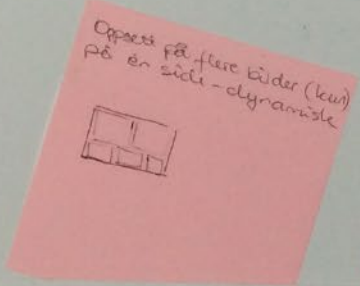 Oppsett på flere bilder (kun)
på én side - dynamisk